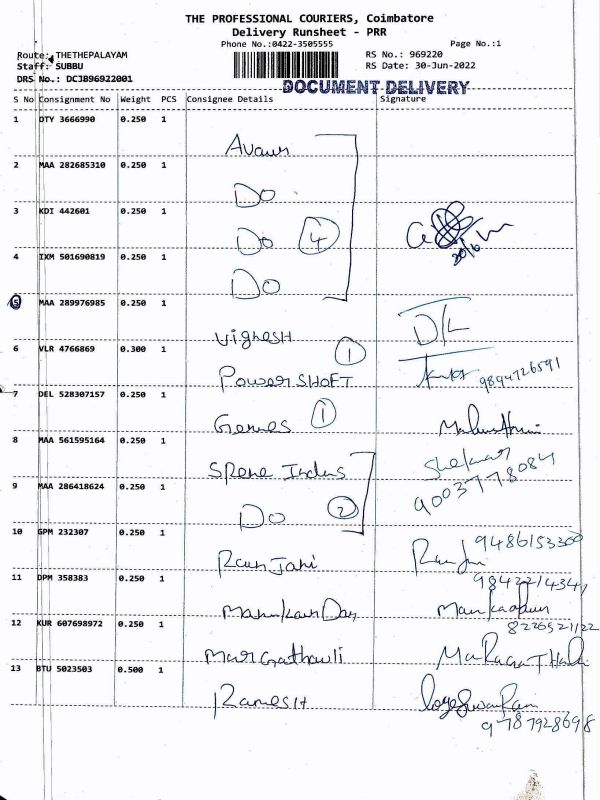 THE PROFESSIONAL COURIERS, Coimbatore
Delivery Runsheet - PRR
Phone No.:0422-3505555 Page No.:1
Route: THETHEPALAYAM RS No.: 969220
Staff: SUBBU RS Date: 30-Jun-2022
DRS No.: DCJB96922001
DOCUMENT DELIVERY
S No Consignment No Weight PCS Consignee Details Signature
1 DTY 3666990 0.250 1
2 MAA 282685310 0.250 1
Do
3 KDI 442601 0.250 1
Do 4
30/6
4 IXM 501690819 0.250 1
Do
5 MAA 289976985 0.250 1
Vighesh D/L
6 VLR 4766869 0.300 1
1
Power SHOFT 9894726591
7 DEL 528307157 0.250 1
1
8 MAA 561595164 0.250 1
Shekar
9003778084
9 MAA 286418624 0.250 1
Do 2
10 GPM 232307 0.250 1
9486153300
Ranjani
11 DPM 358383 0.250 1
9842214347
12 KUR 607698972 0.250 1
8226521122
13 BTU 5023503 0.500 1
RamesH
9787928698